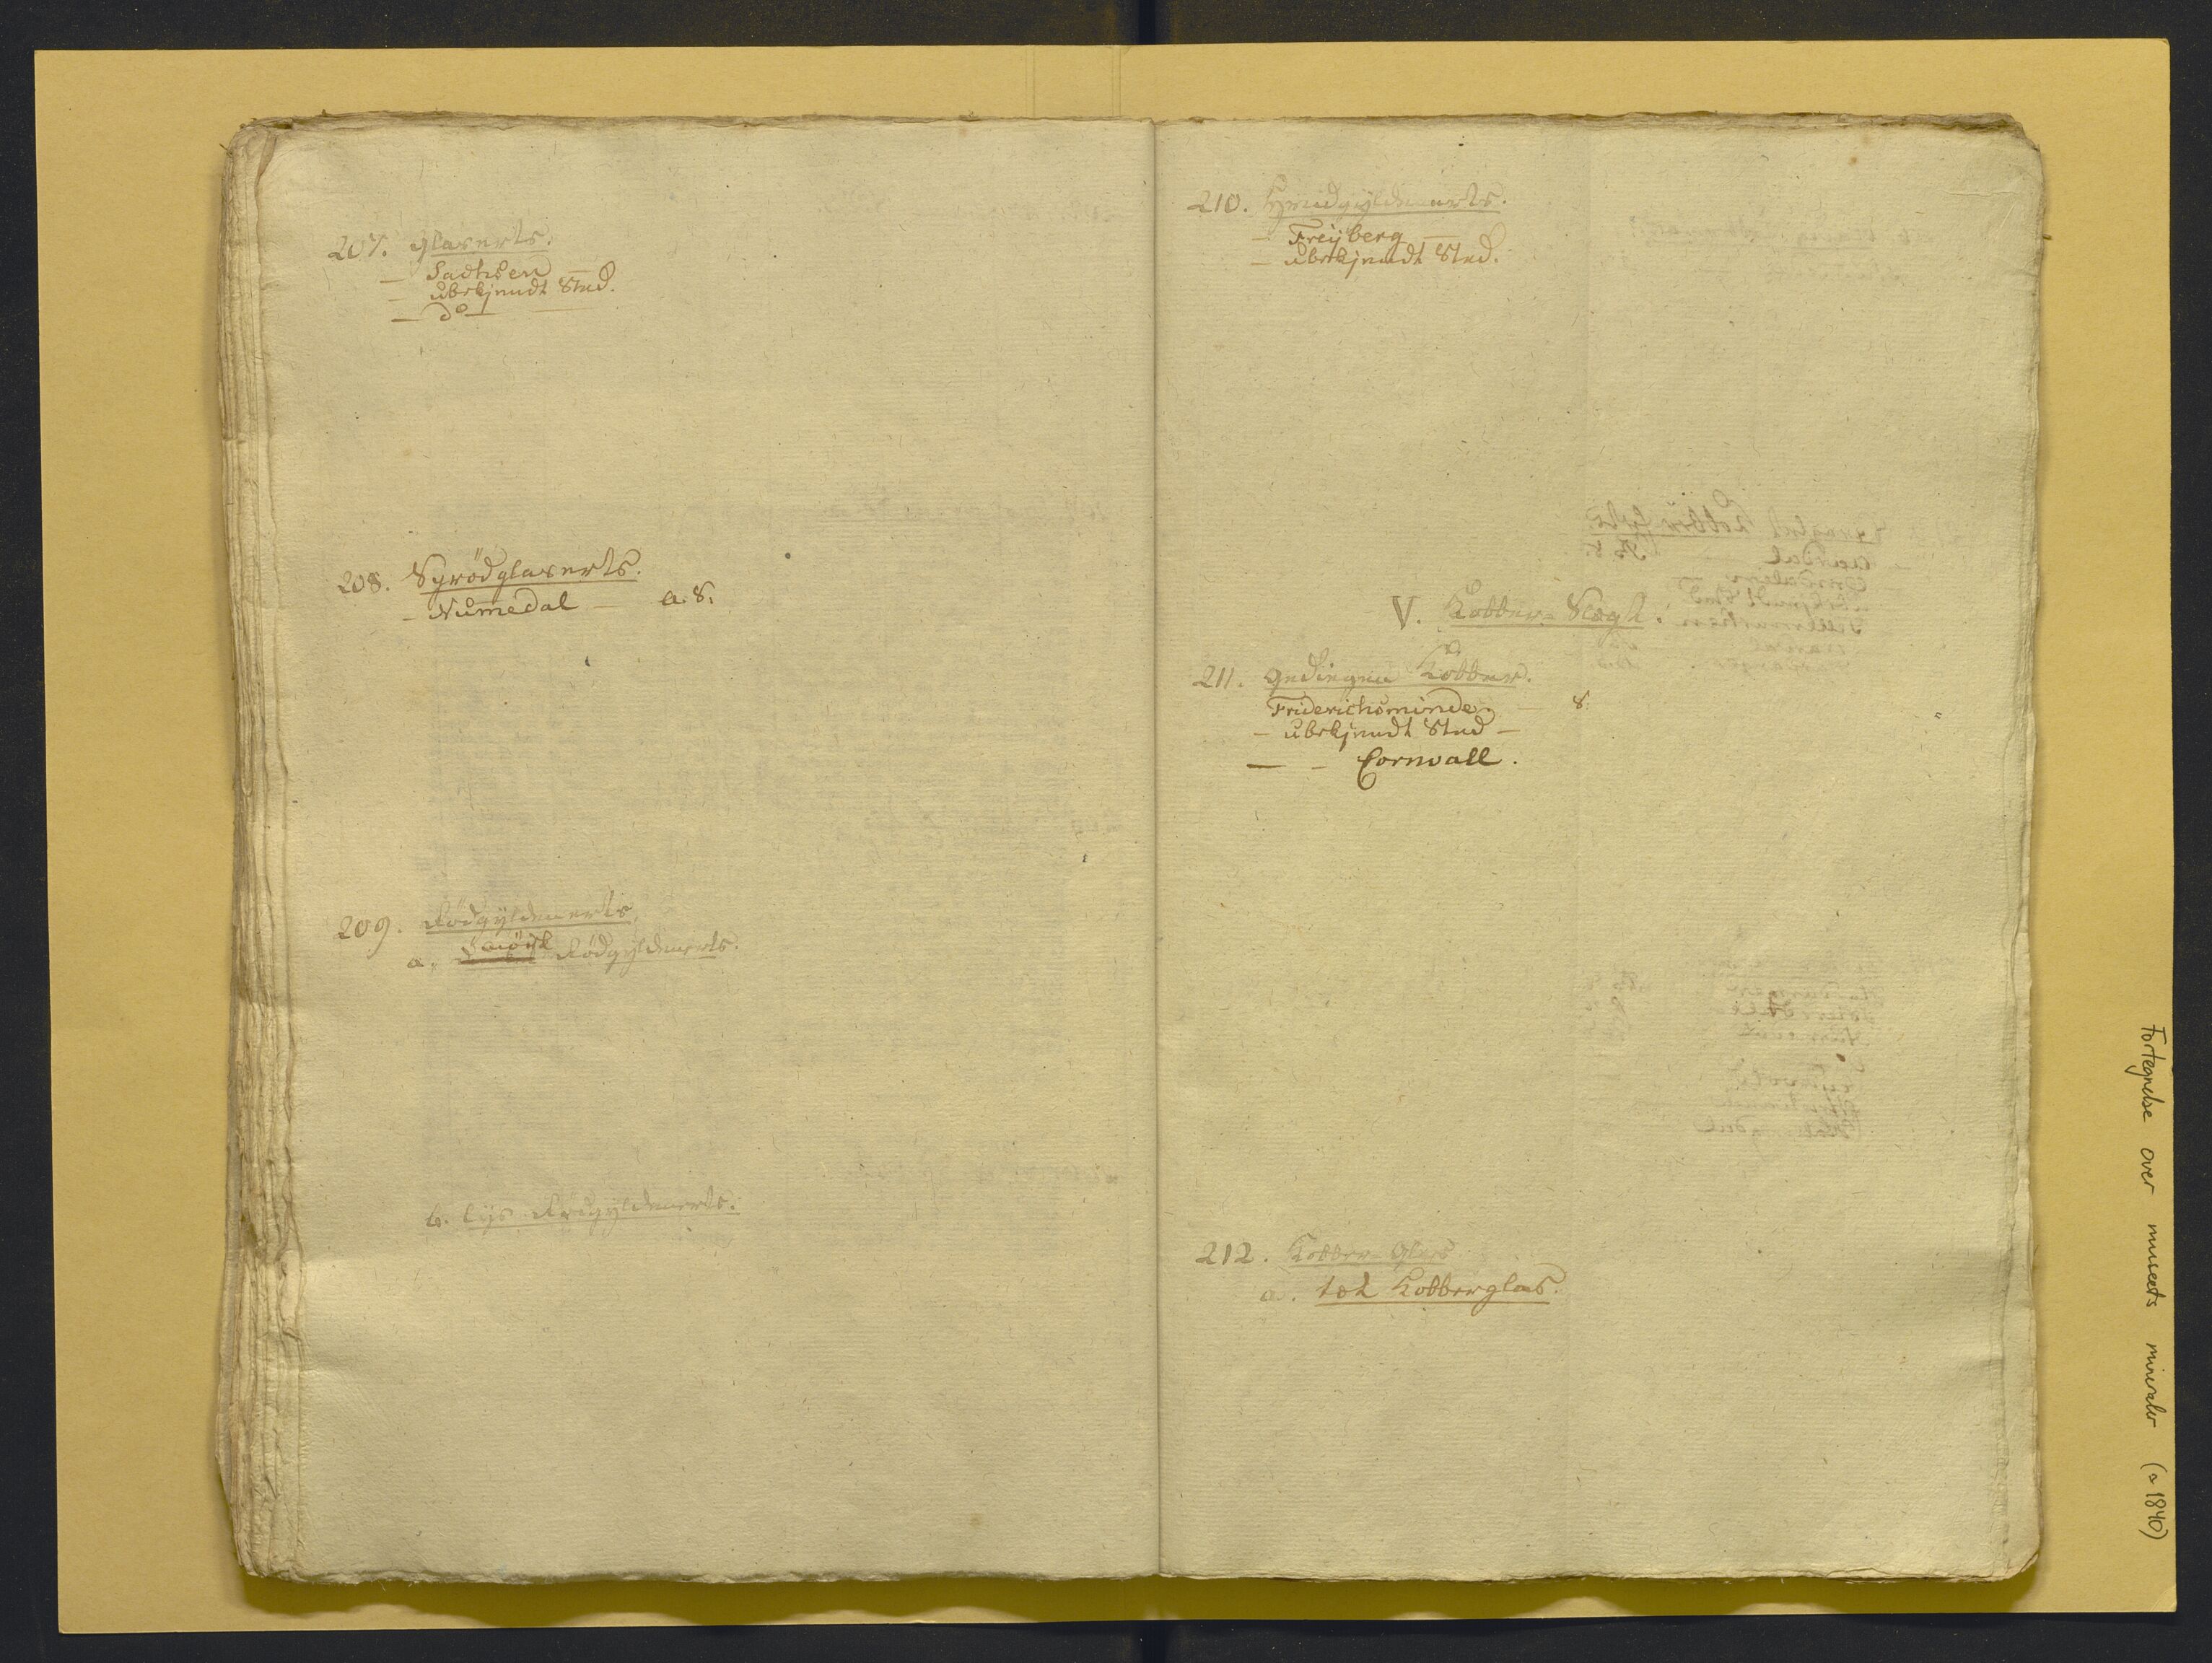 207. Glaserts.
— Sachsen —
— ubekjendt Sted.
— do —
208. Sprödglaserts.
— Numedal — a. 8.
209. Rödgyldenerts.
a. Rödgyldenerts.
b. lys Rödgyldenerts.
210. Hvidgyldenerts.
— Freyberg —
— ubekjendt Sted.
V. Kobber-Slægt.
211. Gediegen Kobber.
Friderichsminde. — 8.
— ubekjendt Sted —
— — Cornvall.
212. Kobber-Glas
a. tæt Kobberglas.
Fortegnelse over museets mineraler (ca 1840)